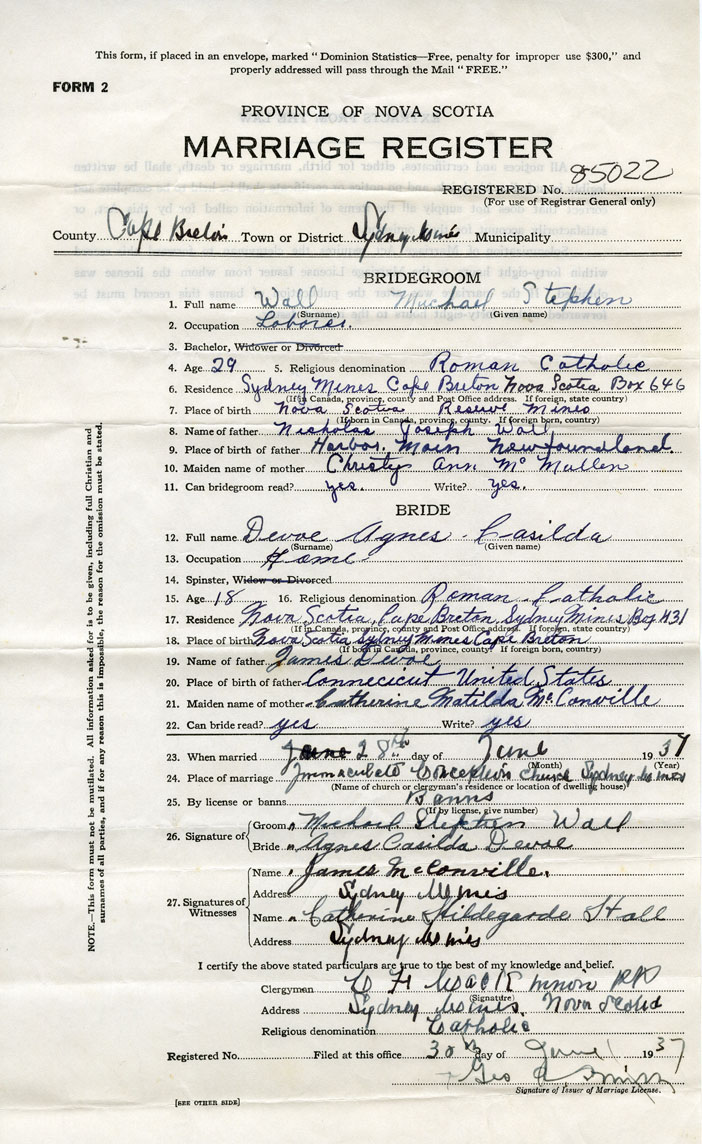 This form, if placed in an envelope, marked "Dominion Statistics—Free, penalty for improper use $300," and
properly addressed will pass through the Mail "FREE."
FORM 2
PROVINCE OF NOVA SCOTIA
MARRIAGE REGISTER
REGISTERED No. 85022
(For use of Registrar General only)
County Cape Breton Town or District Sydney Mines Municipality
BRIDEGROOM
1. Full name Wall Michael Stephen
(Surname) (Given name)
2. Occupation Laborer.
3. Bachelor, Widower or Divorced
4. Age 29 5. Religious denomination Roman Catholic
6. Residence Sydney Mines Cape Breton Nova Scotia Box 646
(If in Canada, province, county and Post Office address. If foreign, state country)
7. Place of birth Nova Scotia Reserve Mines
(If born in Canada, province, county. If foreign born, country)
8. Name of father Nicholas Joseph Wall
9. Place of birth of father Harbor Main Newfoundland.
10. Maiden name of mother Christy Ann McMullen
11. Can bridegroom read? yes. Write? yes.
BRIDE
12. Full name Devoe Agnes Casilda
(Surname) (Given name)
13. Occupation Home
14. Spinster, Widow or Divorced
15. Age 18 16. Religious denomination Roman Catholic
17. Residence Nova Scotia, Cape Breton, Sydney Mines Box 431
(If in Canada, province, county and Post Office address. If foreign, state country)
18. Place of birth Nova Scotia Sydney Mines Cape Breton
(If born in Canada, province, county. If foreign born, country)
19. Name of father James Devoe
20. Place of birth of father Connecicut United States
21. Maiden name of mother Catherine Matilda McConville
22. Can bride read? yes Write? yes
23. When married June 28th day of June 1937
(Month) (Year)
24. Place of marriage Immaculate Conception Church Sydney Mines
(Name of church or clergyman's residence or location of dwelling house)
25. By license or banns Banns
(If by license, give number)
26. Signature of
Groom Michael Stephen Wall
Bride Agnes Casilda Devoe
27. Signatures of Witnesses
Name James McConville.
Address Sydney Mines
Name Catherine Hildegarde Hall
Address Sydney Mines
I certify the above stated particulars are true to the best of my knowledge and belief.
Clergyman PP
(Signature)
Address Sydney Mines, Nova Scotia
Religious denomination Catholic
Registered No. Filed at this office 30th day of June 1937
Geo
Signature of Issuer of Marriage License.
[SEE OTHER SIDE]
NOTE.—This form must not be mutilated. All information asked for is to be given, including full Christian and
surnames of all parties, and if for any reason this is impossible, the reason for the omission must be stated.